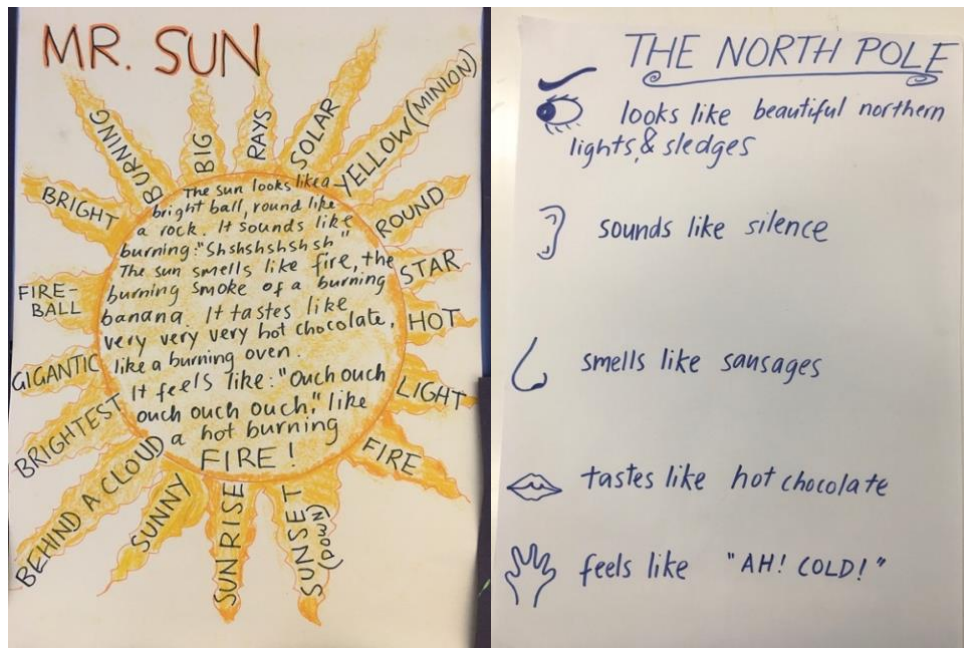 MR. SUN
BURNING
BIG
RAYS
SOLAR
YELLOW (MINION)
BRIGHT
ROUND
STAR
FIRE-
BALL
HOT
GIGANTIC
LIGHT
BRIGHTEST
FIRE
BEHIND A CLOUD
SUNNY
SUNRISE
SUNSET
(DOWN)
The sun looks like a
bright ball, round like
a rock. It sounds like
burning: "Shshshshshsh"
The sun smells like fire, the
burning smoke of a burning
banana. It tastes like
very very very hot chocolate,
like a burning oven.
It feels like: "Ouch ouch
ouch ouch ouch," like
a hot burning
FIRE!
THE NORTH POLE
looks like beautiful northern
lights & sledges
sounds like silence
smells like sausages
tastes like hot chocolate
feels like "AH! COLD!"